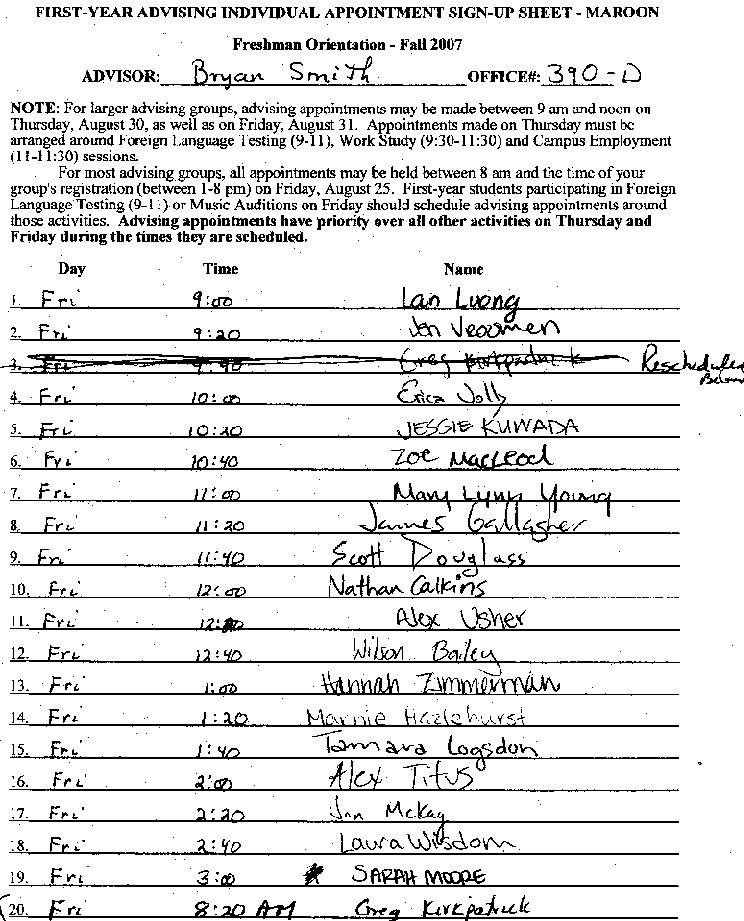 FIRST-YEAR ADVISING INDIVIDUAL APPOINTMENT SIGN-UP SHEET - MAROON
Freshman Orientation - Fall 2007
ADVISOR: Bryan Smith OFFICE#: 390-D
NOTE: For larger advising groups, advising appointments may be made between 9 am and noon on
Thursday, August 30, as well as on Friday, August 31. Appointments made on Thursday must be
arranged around Foreign Language Testing (9-11), Work Study (9:30-11:30) and Campus Employment
(11-11:30) sessions.
For most advising groups, all appointments may be held between 8 am and the time of your
group's registration (between 1-8 pm) on Friday, August 25. First-year students participating in Foreign
Language Testing (9-11) or Music Auditions on Friday should schedule advising appointments around
those activities. Advising appointments have priority over all other activities on Thursday and
Friday during the times they are scheduled.
Day Time Name
1. Fri 9:00 Lan Luong
2. Fri 9:20 Jen
3. Fri 9:40 Greg Kirkpatrick Rescheduled
Below
4. Fri 10:00 Erica Jolly
5. Fri 10:20 JESSIE KUWADA
6. Fri 10:40 Zoe MacLeod
7. Fri 11:00 Mary Lynn Young
8. Fri 11:20 James Gallagher
9. Fri 11:40 Scott Douglass
10. Fri 12:00 Nathan Calkins
11. Fri 12:20 Alex Usher
12. Fri 12:40 Wilson Bailey
13. Fri 1:00 Hannah Zimmerman
14. Fri 1:20 Marnie Hazlehurst
15. Fri 1:40 Tamara Logsdon
16. Fri 2:00 Alex Titus
17. Fri 2:20 Jan McKay
18. Fri 2:40 Laura Wisdom
19. Fri 3:00 * SARAH MOORE
20. Fri 8:20 AM Greg Kirkpatrick